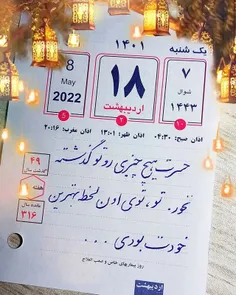 یک شنبه
۱۴۰۱
8
May
2022
۱۸
اردیبهشت
۷
شوال
۱۴۴۳
5
۲
۱۰
اذان صبح: ۰۴:۳۰ اذان ظهر: ۱۳:۰۱ اذان مغرب: ۲۰:۱۶
حسرت هیچ چیزی رو تو گذشته
نخور. تو، توی اون لحظه بهترین
خودت بودی ...
۴۹
گذشت سال
هفته
مانده سال
۳۱۶
روز بیماری‌های خاص و صعب العلاج
اردیبهشت